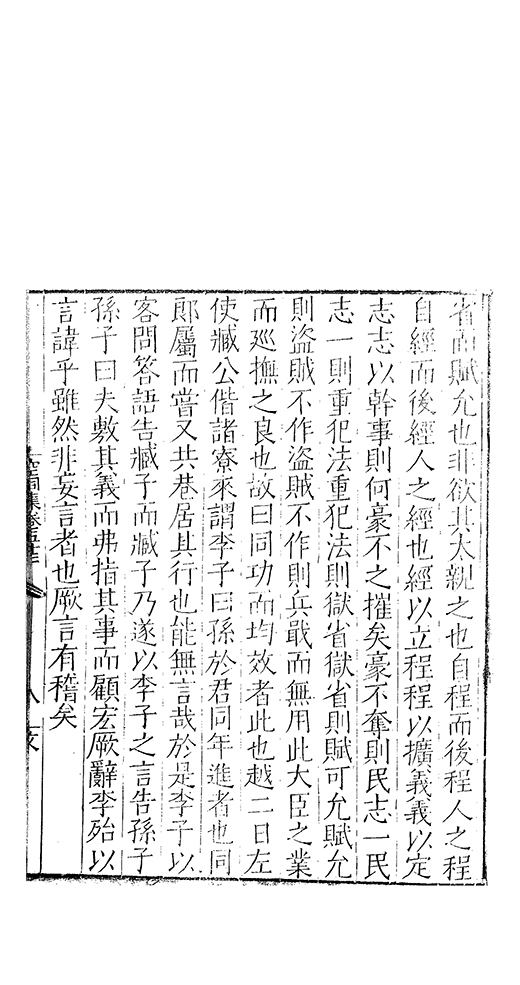 省而賦允也非欲其太親之也自程而後程人之程
自經而後經人之經也經以立程程以擴義義以定
志志以幹事則何豪不之摧矣豪不奪則民志一民
志一則重犯法重犯法則獄省獄省則賦可允賦允
則盜賊不作盜賊不作則兵戢而無用此大臣之業
而廵撫之良也故曰同功而均效者此也越二日左
使臧公偕諸寮來謂李子曰孫於君同年進者也同
郎屬而甞又共巷居其行也能無言哉於是李子以
客問答語告臧子而臧子乃遂以李子之言告孫子
孫子曰夫敷其義而弗指其事而顧宏厥辭李殆以
言諱乎雖然非妄言者也厥言有稽矣
空同集卷五十三
八
文